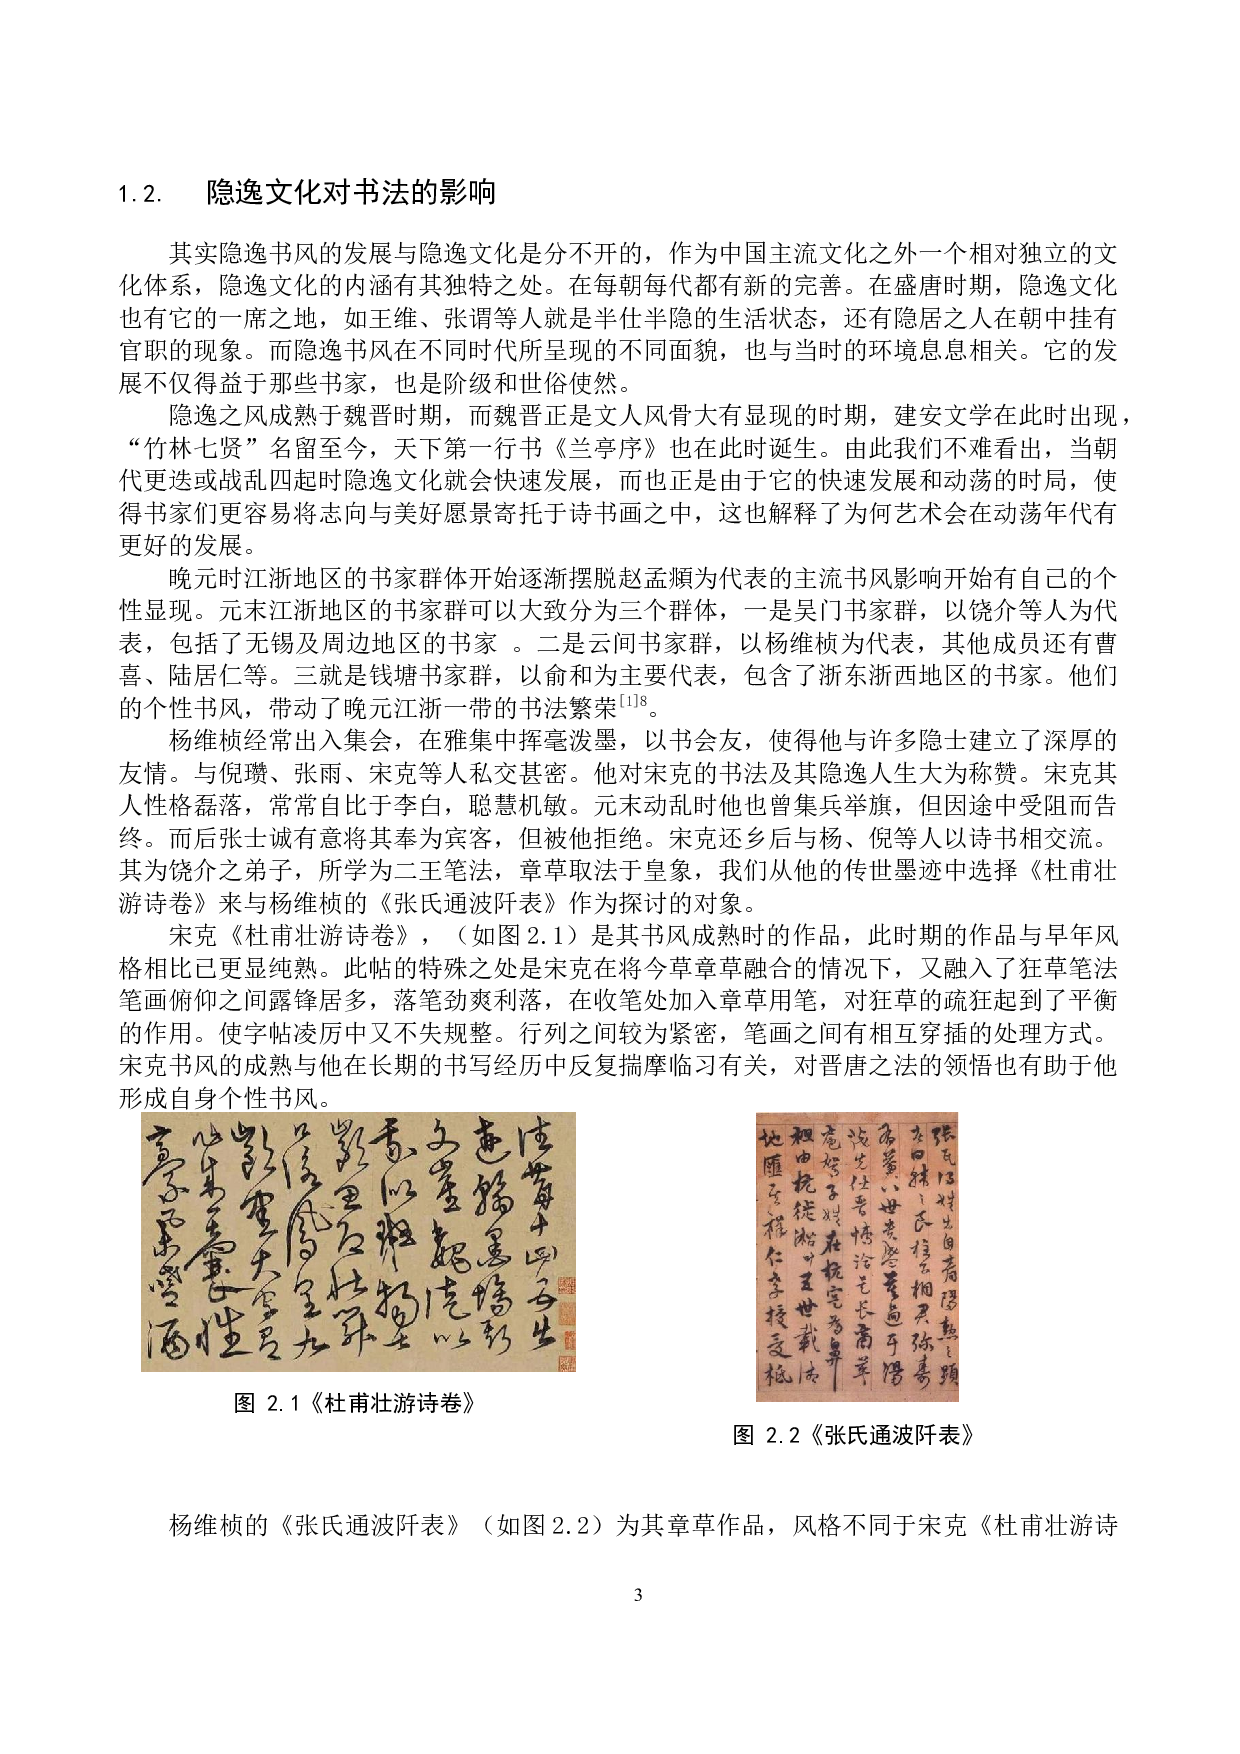 1.2. 隐逸文化对书法的影响
其实隐逸书风的发展与隐逸文化是分不开的，作为中国主流文化之外一个相对独立的文
化体系，隐逸文化的内涵有其独特之处。在每朝每代都有新的完善。在盛唐时期，隐逸文化
也有它的一席之地，如王维、张谓等人就是半仕半隐的生活状态，还有隐居之人在朝中挂有
官职的现象。而隐逸书风在不同时代所呈现的不同面貌，也与当时的环境息息相关。它的发
展不仅得益于那些书家，也是阶级和世俗使然。
隐逸之风成熟于魏晋时期，而魏晋正是文人风骨大有显现的时期，建安文学在此时出现，
“竹林七贤”名留至今，天下第一行书《兰亭序》也在此时诞生。由此我们不难看出，当朝
代更迭或战乱四起时隐逸文化就会快速发展，而也正是由于它的快速发展和动荡的时局，使
得书家们更容易将志向与美好愿景寄托于诗书画之中，这也解释了为何艺术会在动荡年代有
更好的发展。
晚元时江浙地区的书家群体开始逐渐摆脱赵孟頫为代表的主流书风影响开始有自己的个
性显现。元末江浙地区的书家群可以大致分为三个群体，一是吴门书家群，以饶介等人为代
表，包括了无锡及周边地区的书家 。二是云间书家群，以杨维桢为代表，其他成员还有曹
喜、陆居仁等。三就是钱塘书家群，以俞和为主要代表，包含了浙东浙西地区的书家。他们
的个性书风，带动了晚元江浙一带的书法繁荣[1]8。
杨维桢经常出入集会，在雅集中挥毫泼墨，以书会友，使得他与许多隐士建立了深厚的
友情。与倪瓒、张雨、宋克等人私交甚密。他对宋克的书法及其隐逸人生大为称赞。宋克其
人性格磊落，常常自比于李白，聪慧机敏。元末动乱时他也曾集兵举旗，但因途中受阻而告
终。而后张士诚有意将其奉为宾客，但被他拒绝。宋克还乡后与杨、倪等人以诗书相交流。
其为饶介之弟子，所学为二王笔法，章草取法于皇象，我们从他的传世墨迹中选择《杜甫壮
游诗卷》来与杨维桢的《张氏通波阡表》作为探讨的对象。
宋克《杜甫壮游诗卷》，（如图 2.1）是其书风成熟时的作品，此时期的作品与早年风
格相比已更显纯熟。此帖的特殊之处是宋克在将今草章草融合的情况下，又融入了狂草笔法
笔画俯仰之间露锋居多，落笔劲爽利落，在收笔处加入章草用笔，对狂草的疏狂起到了平衡
的作用。使字帖凌厉中又不失规整。行列之间较为紧密，笔画之间有相互穿插的处理方式。
宋克书风的成熟与他在长期的书写经历中反复揣摩临习有关，对晋唐之法的领悟也有助于他
形成自身个性书风。
图 2.1《杜甫壮游诗卷》
图 2.2《张氏通波阡表》
杨维桢的《张氏通波阡表》（如图 2.2）为其章草作品，风格不同于宋克《杜甫壮游诗
3